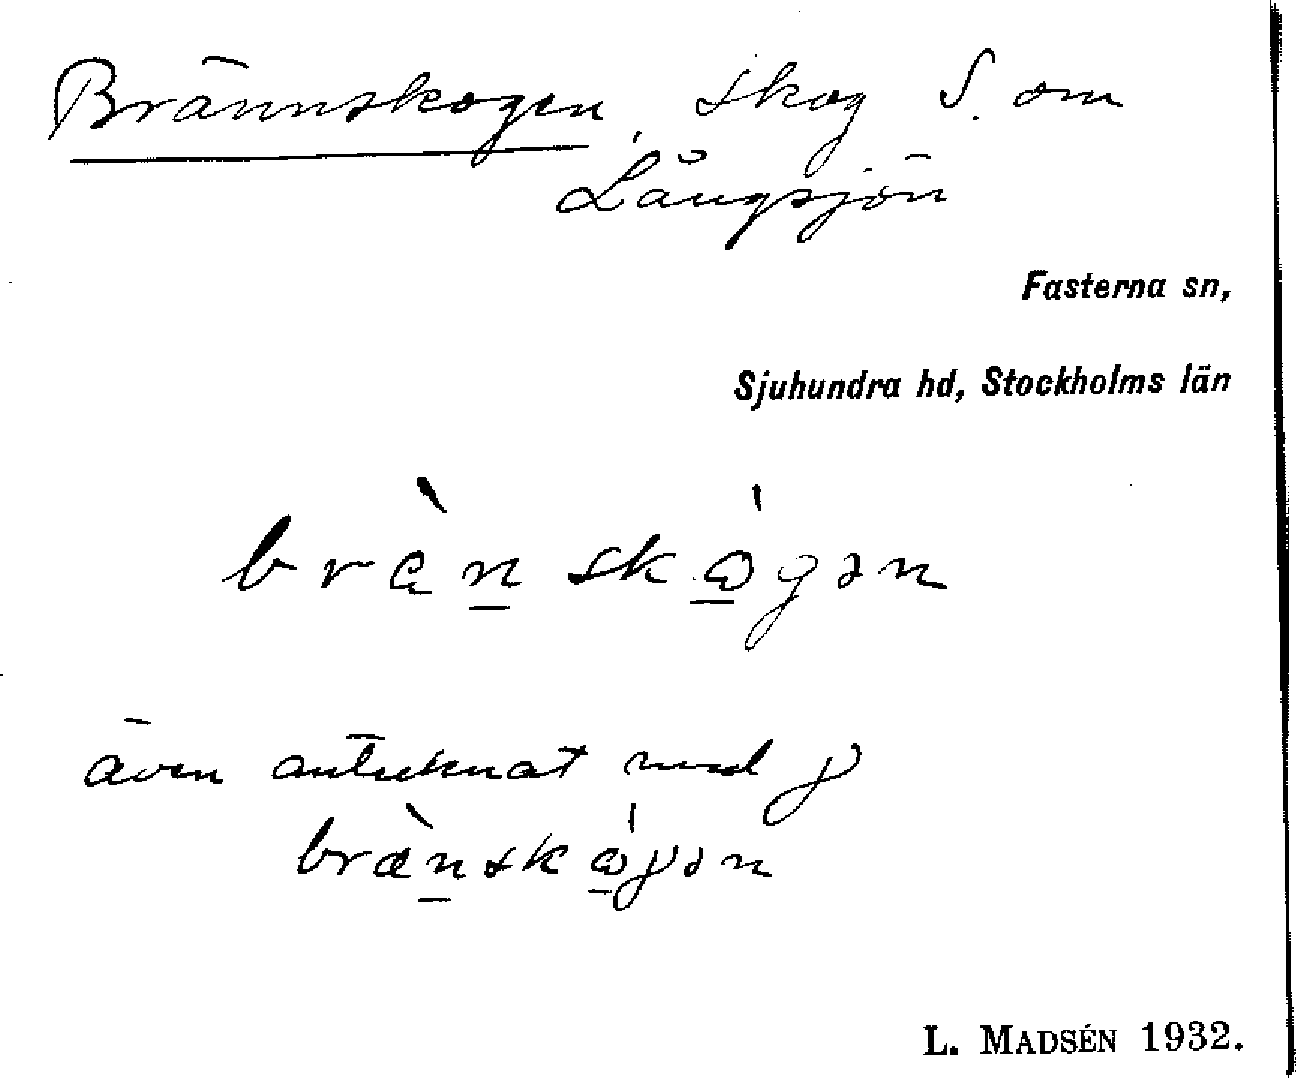 Brännskogen, skog S. om
Långsjön
Fasterna sn,
Sjuhundra hd, Stockholms län
bræ̀n̲skώ̲gən
även antecknat med γ
bræ̀n̲skώ̲γən
L. MADSÉN 1932.